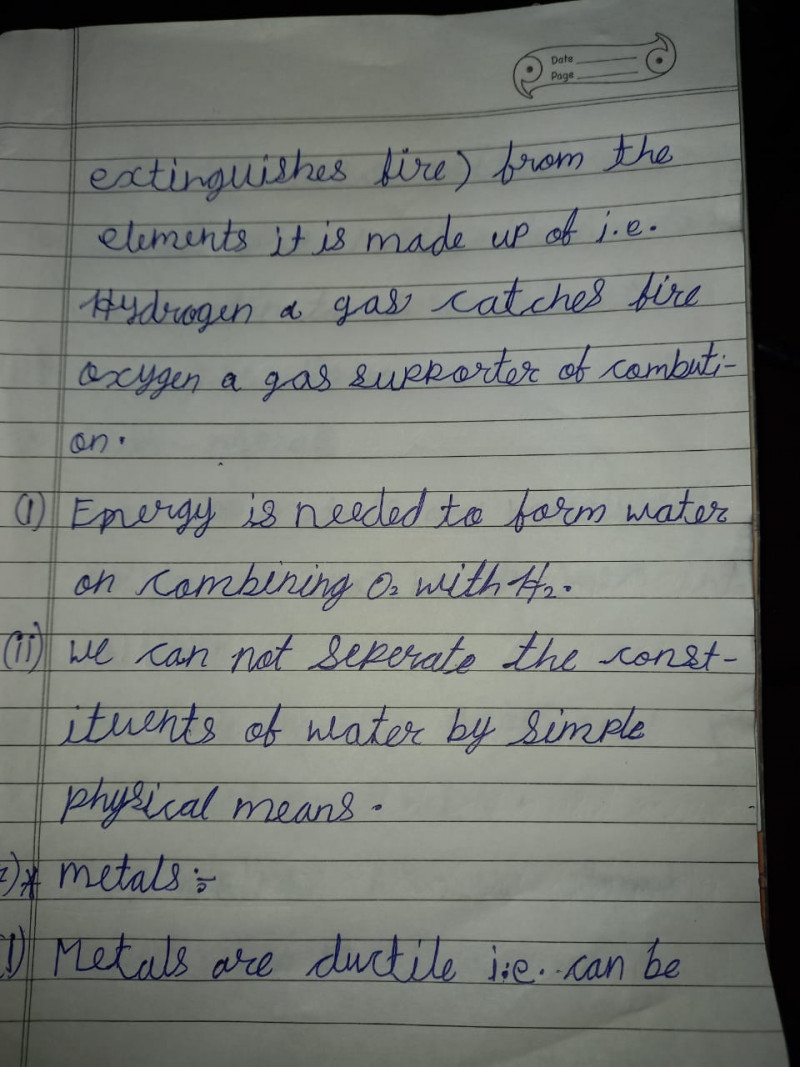 Date
Page
extinguishes fire) from the
elements it is made up of i.e.
Hydrogen a gas catches fire
oxygen a gas supporter of combuti-
on.
(i) Energy is needed to form water
on combining O₂ with H₂.
(ii) we can not seperate the const-
ituents of water by simple
physical means.
* metals :-
Metals are ductile i.e. can be